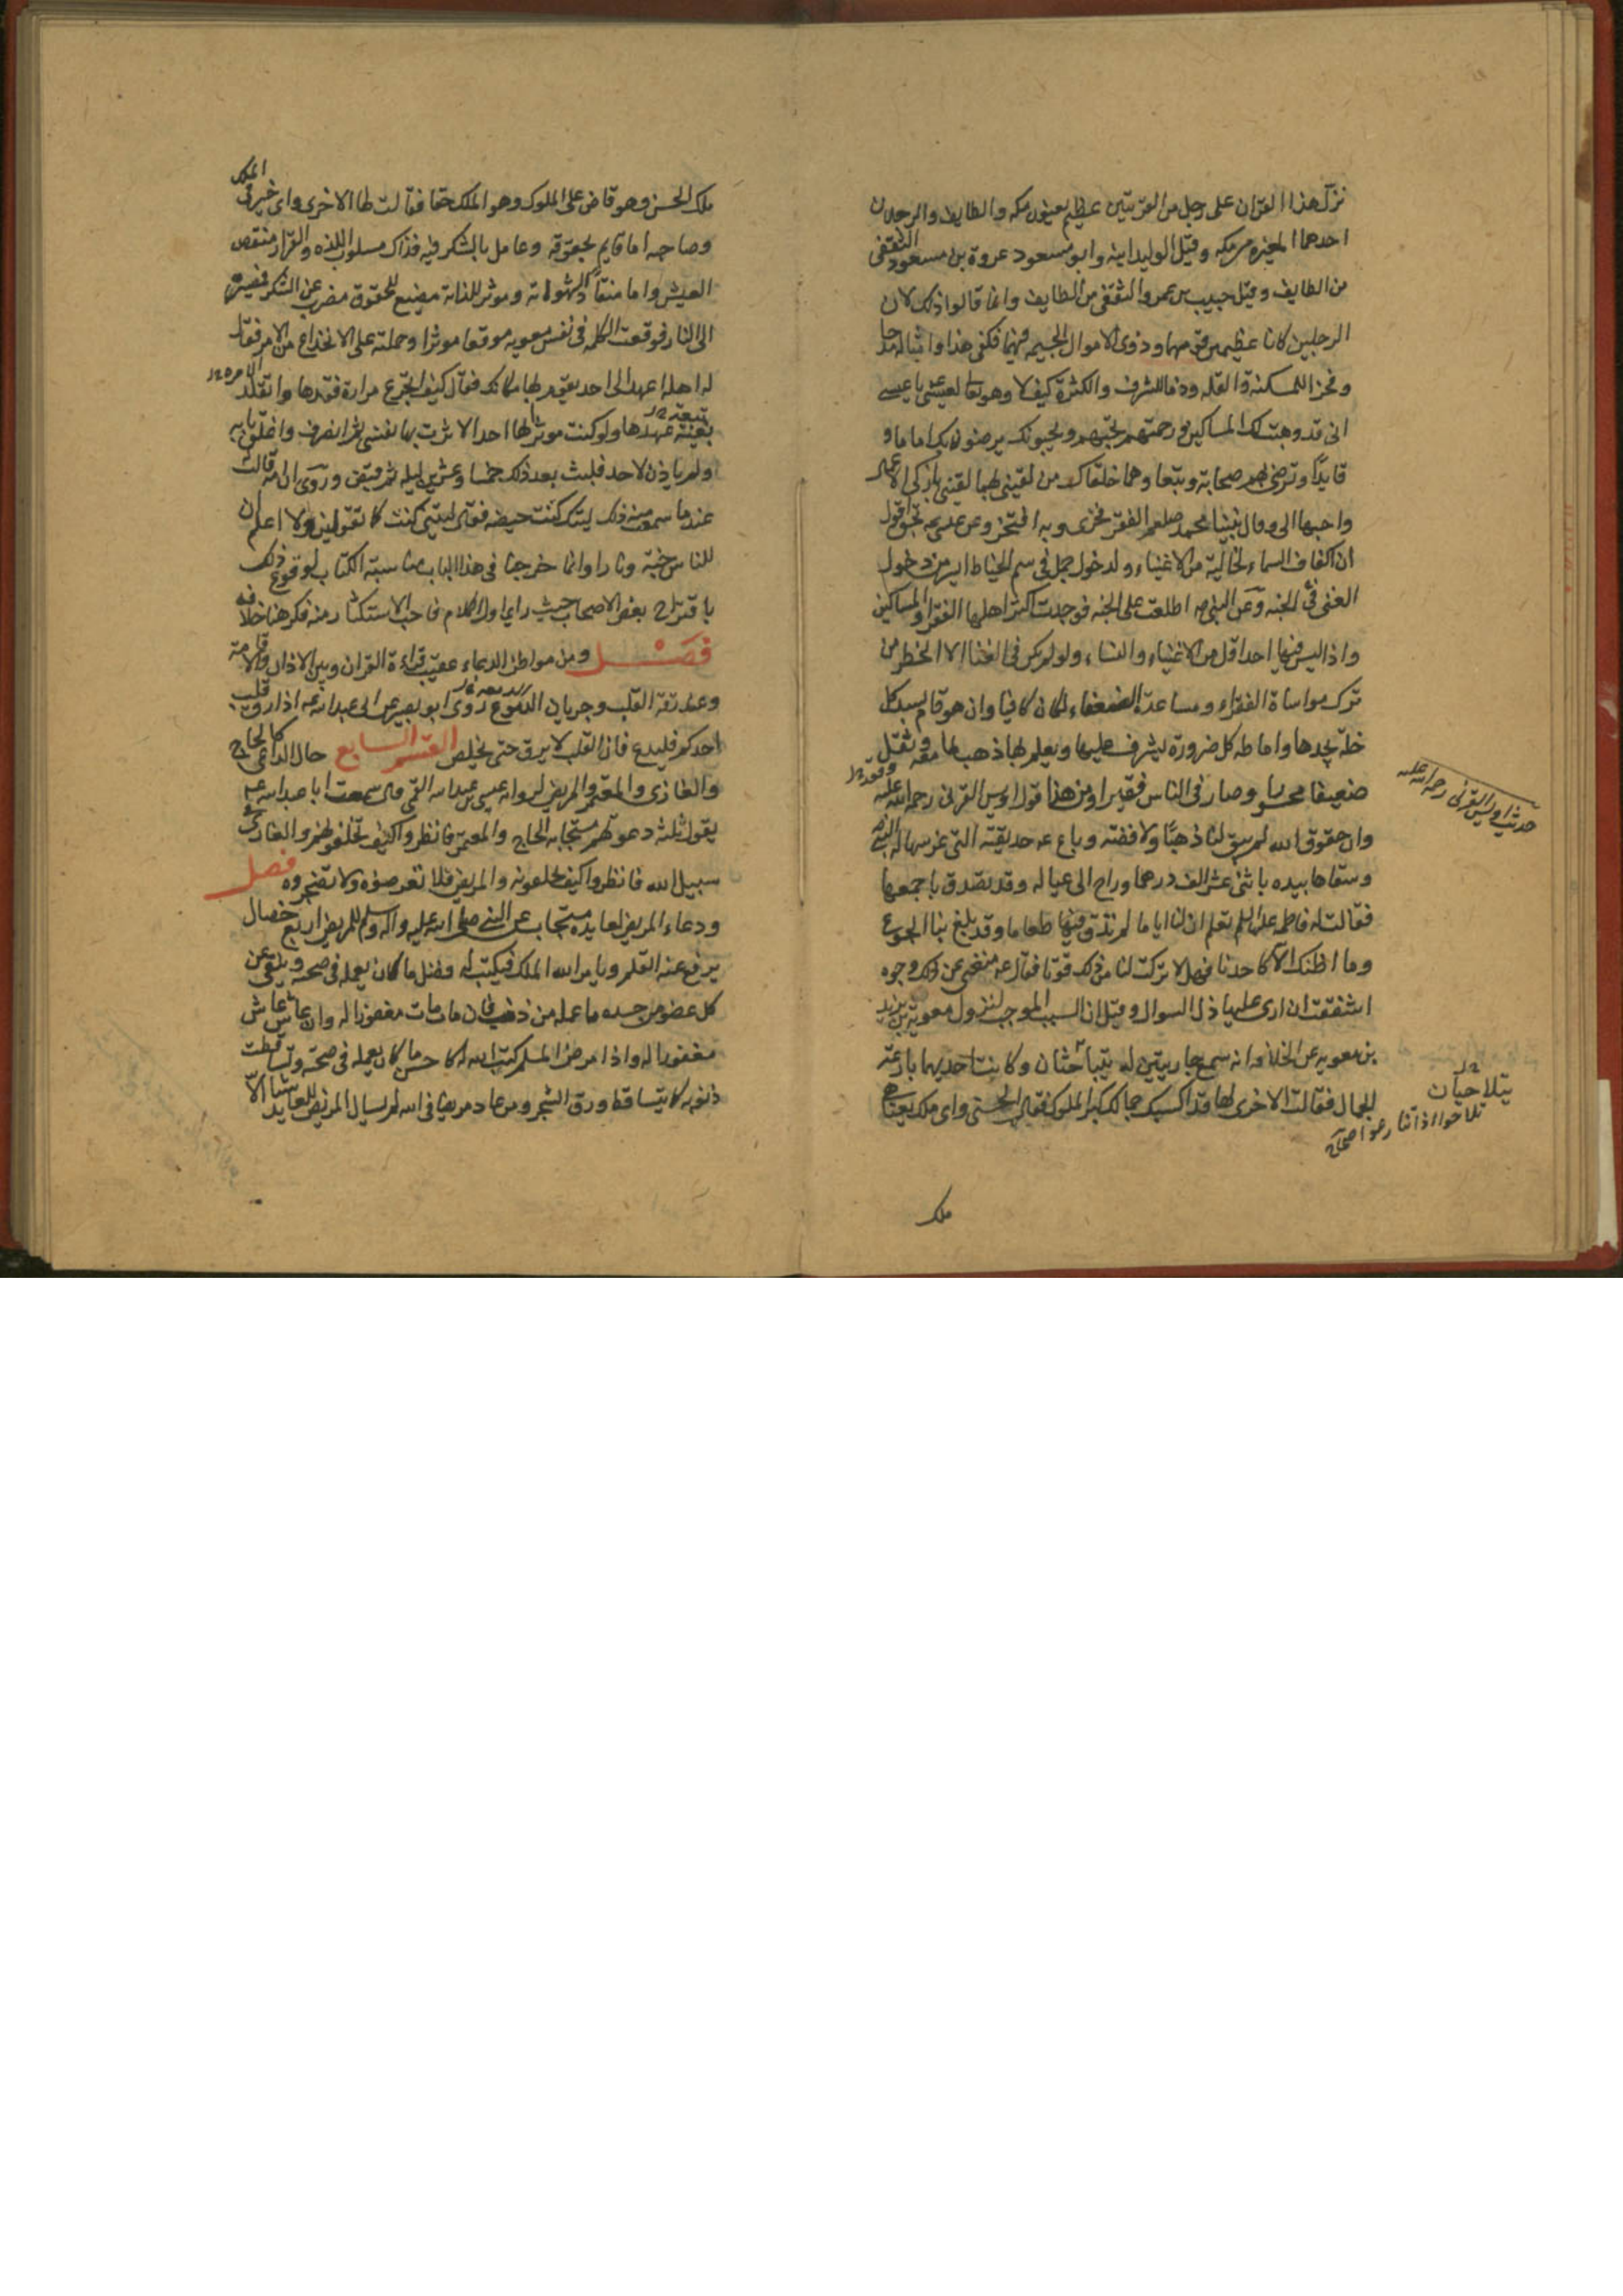 نزل هذا القران على رجل من القريتين عظيم يعنون مكه والطايف والرجلان
احدهما المغيره من مكه وقيل الوليد ابنه وابو مسعود عروة بن مسعود الثقفى
من الطايف وقيل حبيب بن عمر والثقفى من الطايف وانما قالوا ذلك لان
الرجلين كانا عظيمين فى قومهما وذوى الاموال الجسيمه فيهما فكفى هذا وامثاله مدحا
وفخرا للمسكنة والقله وذما للشرف والكثرة كيف لا وهو تعالى يقول لعيسى يا عيسى
انى قد وهبت لك المساكين ورحمتهم تحبهم ويحبونك يرضون بك اماما و
قايدا وترضى بهم صحابة وتبعا وهما خلقان من لقينى بهما لقينى بازكى الاعمال
واحبها الى وقال نبينا محمد صلعم الفقر فخرى وبه افتخر وعن عيسى بحق اقول
ان اكناف السماء لخالية من الاغنياء ولدخول جمل فى سم الخياط ايسر من دخول
الغنى فى الجنه وعن النبى ص اطلعت على الجنه فوجدت اكثر اهلها الفقراء والمساكين
واذا ليس فيها احد اقل من الاغنياء والنساء ولو لم يكن فى الغنا الا الخطر من
ترك مواساة الفقراء ومساعدة الضعفاء لكان كافيا وان هو قام بسد كل
خلة يجدها واماطه كل ضرورة يشرف عليها ويعلم بها ذهب ما معه وثقل
ضعيفا محسورا وصار فى الناس فقيرا ومن هنا قول اويس القرنى رحمه الله عليه
وان حقوق الله لم يبق لنا ذهبا ولا فضة وباع ع حديقته التى غرسها له النبى ص
وسقاها بيده باثنى عشر الف درهما وراح الى عياله وقد تصدق باجمعها
فقالت له فاطمه عليها السلم تعلم ان لنا اياما لم نذق فيها طعاما وقد بلغ بنا الجوع
وما اظنك الا كاحدنا فهلا تركت لنا من ذلك قوتا فقال ع منعنى عن ذلك وجوه
اشفقت ان ارى عليها ذل السوال وقيل ان السبب الموجب لنزول معوية بن يزيد
بن معويه عن الخلافة انه سمع جاريتين له يتباحثان وكانت احديهما بارعة
الجمال فقالت الاخرى لها قد اكسبك جمالك كبر الملوك فقالت الحسنى واى ملك يضاهى
حديث اويس القرنى رحمه الله عليه
يتلاحيان
تلاحوا اذا تنازعوا صحاح
ملك
ملك الحسن وهو قاض على الملوك وهو الملك حقا فقالت لها الاخرى واى خير فى الملك
وصاحبه اما قايم بحقوقه وعامل بالشكر فيه فذاك مسلوب اللذه والقرار منغص
العيش واما منقاد لشهواته وموثر للذاته مضيع للحقوق مضرب عن الشكر فمصيره
الى النار فوقعت الكلمه فى نفس معويه موقعا موثرا وحملته على الانخلاع من الامر فقال
له اهله اعهد الى احد يقوم بها مكانك فقال كيف اتجرع مرارة فقدها واتقلد
تبعة عهدها ولو كنت موثرا بها احدا لاثرت بها نفسى ثم انصرف واغلق بابه
ولم ياذن لاحد فلبث بعد ذلك خمسا وعشرين ليله ثم قبض وروى ان امه قالت
عندما سمعت منه ذلك ليتك كنت حيضه فقال ليتنى كنت كما تقولين ولا اعلم ان
للناس جنة ونارا وانما خرجنا فى هذا الباب عن مناسبة الكتاب لوقوع ذلك
باقتراح بعض الاصحاب حيث راى اول الكلام فاحب الاستكثار منه فكرهنا خلافه
فصل ومن مواطن الدعاء عقيب قراءة القران وبين الاذان والاقامة
وعند رقة القلب وجريان الدموع روى ابو بصير عن ابى عبد الله ع اذا رق قلب
احدكم فليدع فان القلب لا يرق حتى يخلص القسم السابع حال الداعى كالحاج
والغازى والمعتمر والمريض لروايه عيسى بن عبد الله القمى قال سمعت ابا عبد الله ع
يقول ثلثة دعوتهم مستجابه الحاج والمعتمر فانظروا كيف تخلفونهم والغازى فى
سبيل الله فانظروا كيف تخلفونه والمريض فلا تعرضوه ولا تضجروه فصل
ودعاء المريض لعايده مستجاب عن النبى صلى الله عليه واله وسلم للمريض اربع خصال
يرفع عنه القلم ويامر الله الملك فيكتب له فضل ما كان يعمله فى صحته وينفى عن
كل عضو من جسده ما عمله من ذنب فان مات مات مغفورا له وان عاش عاش
مغفورا له واذا مرض المسلم كتب الله له كاحسن ما كان يعمله فى صحته وتساقطت
ذنوبه كما يتساقط ورق الشجر ومن عاد مريضا فى الله لم يسال المريض للعايد شيئا الا